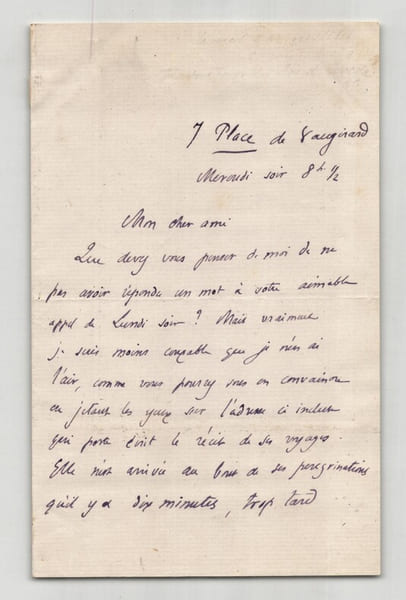 7 Place de Vaugirard
Mercredi soir 8 h 1/2
Mon cher ami
Que devez vous penser de moi de ne
pas avoir répondu un mot à votre aimable
appel de Lundi soir ? Mais vraiment
je suis moins coupable que je n'en ai
l'air, comme vous pourrez vous en convaincre
en jetant les yeux sur l'adresse ci incluse
qui porte écrit le récit de ses voyages.
Elle n'est arrivée au bout de ses pérégrinations
qu'il y a dix minutes, trop tard